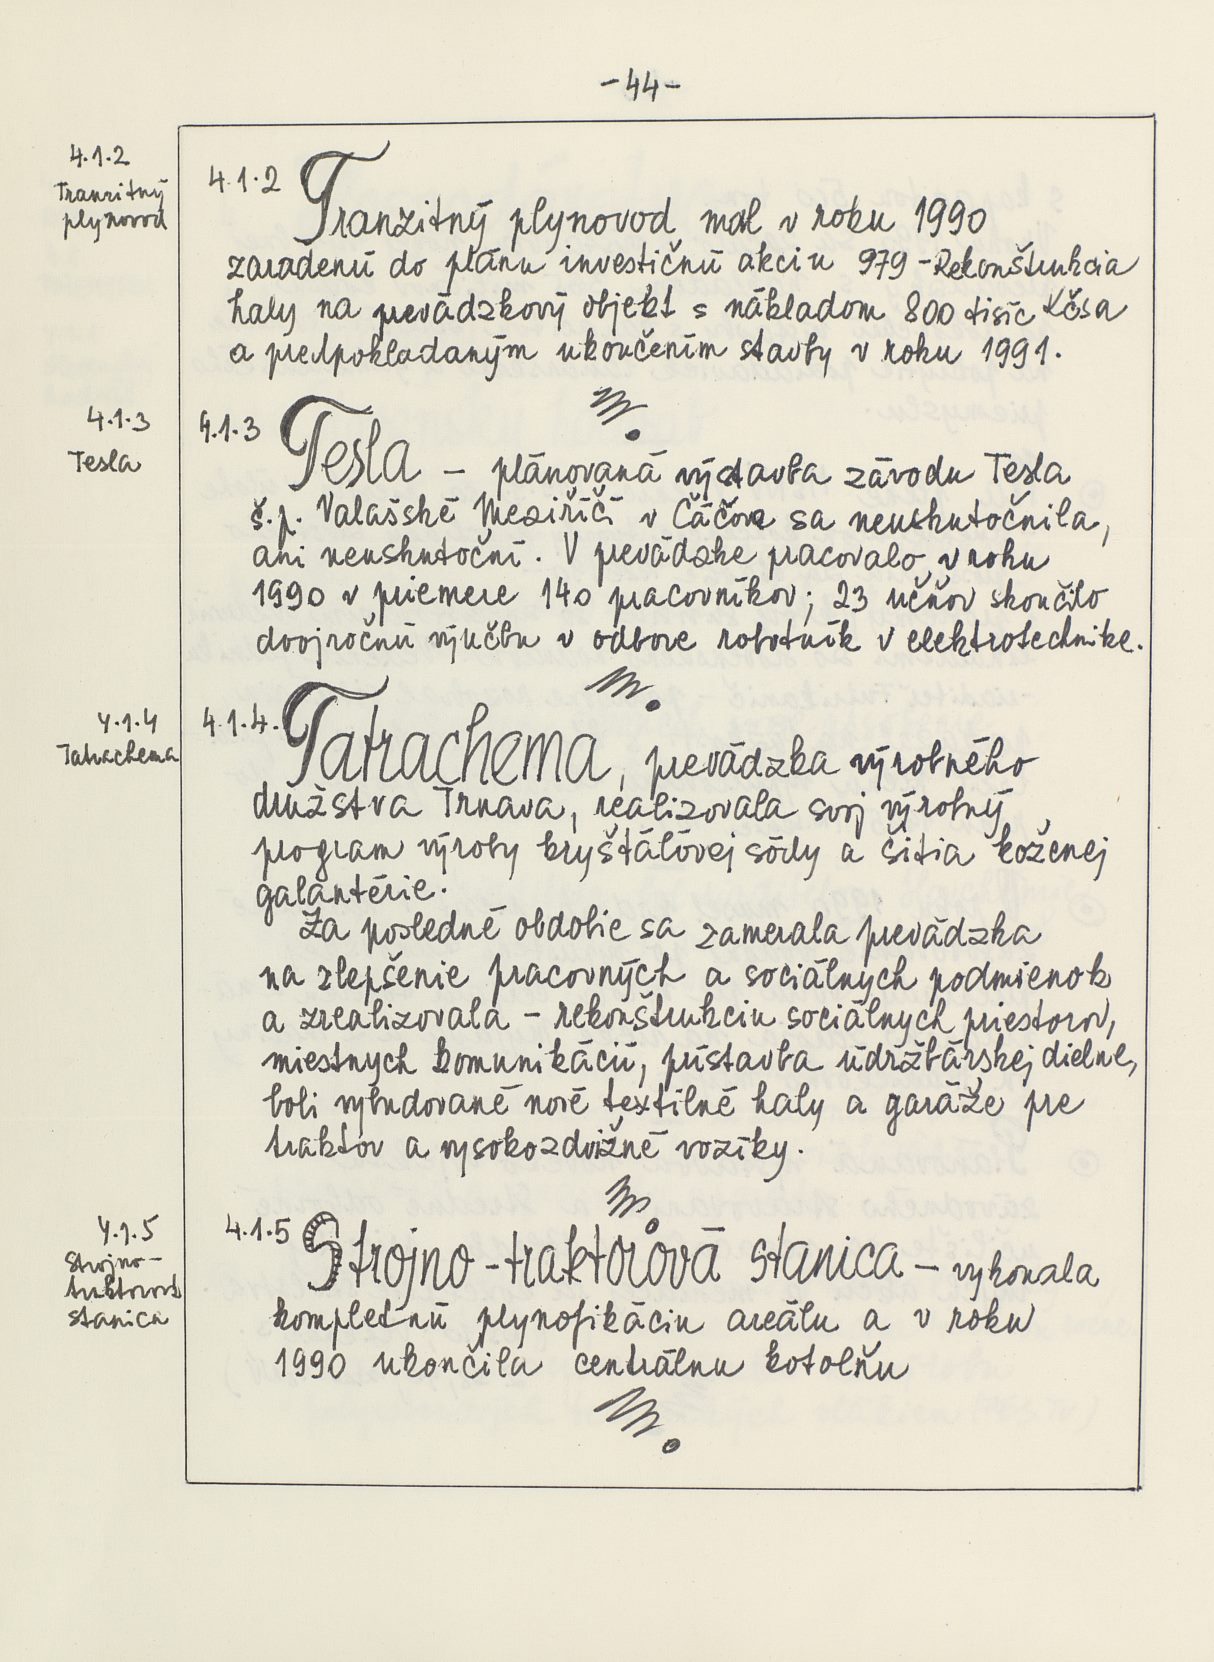 -44-
4.1.2
Tranzitný
plynovod
4.1.2 Tranzitný plynovod mal v roku 1990
zaradenú do plánu investičnú akciu 979 - Rekonštrukcia
haly na prevádzkový objekt s nákladom 800 tisíc Kčsa
a predpokladaným ukončením stavby v roku 1991.
4.1.3
Tesla
4.1.3 Tesla - plánovaná výstavba závodu Tesla
š.p. Valašské Meziříčí v Čáčove sa neuskutočnila,
ani neuskutoční. V prevádzke pracovalo v roku
1990 v priemere 140 pracovníkov; 23 učňov skončilo
dvojročnú výučbu v odbore robotník v elektrotechnike.
4.1.4
Tatrachema
4.1.4. Tatrachema, prevádzka výrobného
družstva Trnava, realizovala svoj výrobný
program výroby kryštálóvej sódy a šitia koženej
galantérie.
Za posledné obdobie sa zamerala prevádzka
na zlepšenie pracovných a sociálnych podmienok
a zrealizovala - rekonštrukciu sociálnych priestorov,
miestnych komunikácií, prístavba údržbárskej dielne,
boli vybudované nové textilné haly a garáže pre
traktóv a vysokozdvižné vozíky.
4.1.5
Strojno-
traktorová
stanica
4.1.5 Strojno-traktorová stanica - vykonala
kompletnú plynofikáciu areálu a v roku
1990 ukončila centrálnu kotolňu